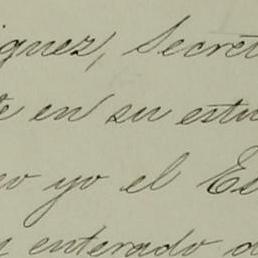 iguez, Secret
te en su estu
eo yo el Es
enterado d